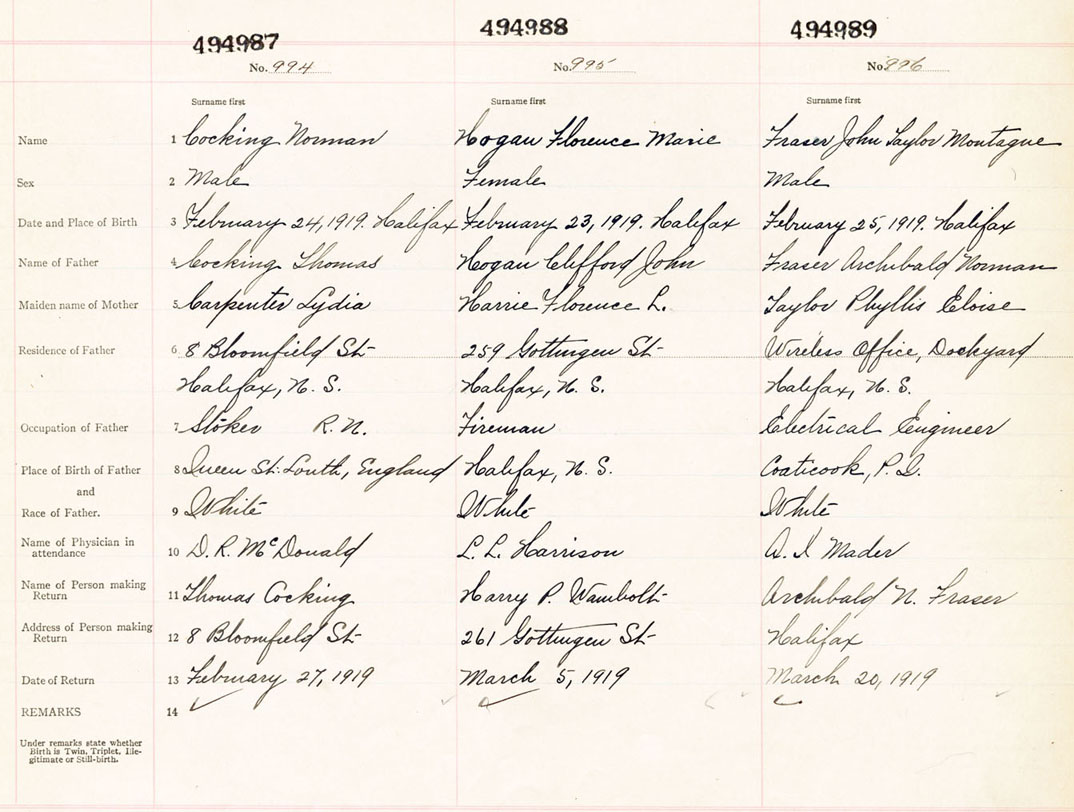 494987 494988 494989
No. 994 No. 995 No. 996
Surname first Surname first Surname first
Name 1 Cocking Norman Hogan Florence Marie Fraser John Taylor Montague
Sex 2 Male Female Male
Date and Place of Birth 3 February 24, 1919. Halifax February 23, 1919. Halifax February 25, 1919. Halifax
Name of Father 4 Cocking Thomas Hogan Clifford John Fraser Archibald Norman
Maiden name of Mother 5 Carpenter Lydia Harrie Florence L. Taylor Phyllis Eloise
Residence of Father 6 8 Bloomfield St 259 Gottingen St Wireless Office, Dockyard
Halifax, N. S. Halifax, N. S. Halifax, N. S.
Occupation of Father 7 Stoker R. N. Fireman Electrical Engineer
Place of Birth of Father 8 Queen St. South, England Halifax, N. S. Coaticook, P. Q.
and
Race of Father. 9 White White White
Name of Physician in
attendance 10 D. R. McDonald L. L. Harrison A. I. Mader
Name of Person making
Return 11 Thomas Cocking Harry P. Wambolt Archibald N. Fraser
Address of Person making
Return 12 8 Bloomfield St 261 Gottingen St Halifax
Date of Return 13 February 27, 1919 March 5, 1919 March 20, 1919
REMARKS 14
Under remarks state whether
Birth is Twin, Triplet, Ille-
gitimate or Still-birth.